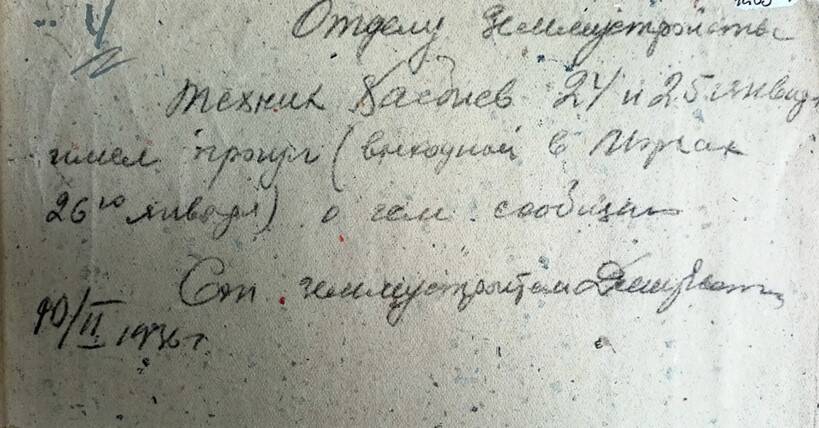 Отделу Землеустройства
Техник 24 и 25 января
имел прогул (выходной в
26го января) о чем сообщаю
Ст. землеустроитель
10/II 1936 г.